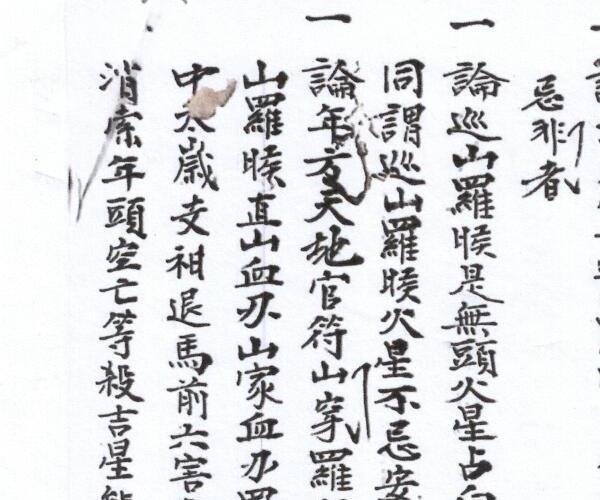 忌非者
一論巡山羅睺是無頭火星占
同謂巡山羅睺火星不忌安
一論年方天地官符山穿羅
山羅睺直山血刃山家血刃
中太歲支神退馬前六害
消索年頭空亡等殺吉星能